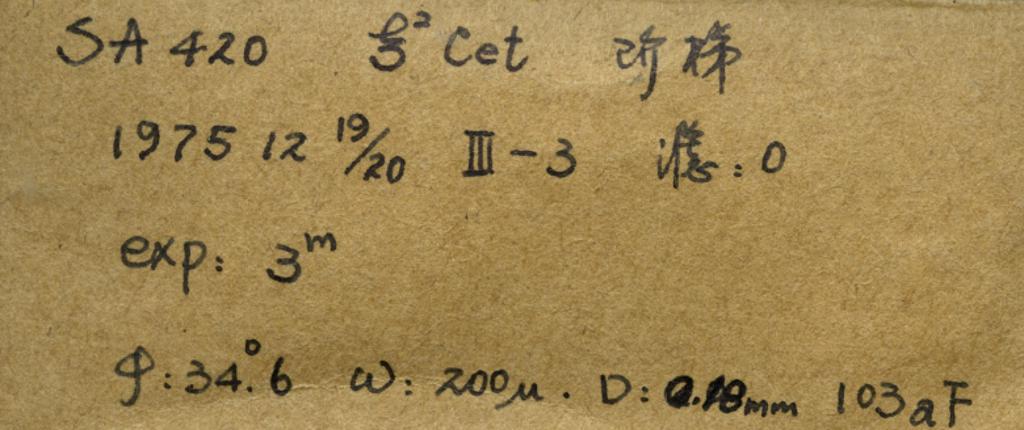 SA 420 ξ² Cet 阶梯
1975 12 19/20 III-3 滤:0
exp: 3ᵐ
φ:34°.6 ω: 200μ. D: 0.18mm 103aF